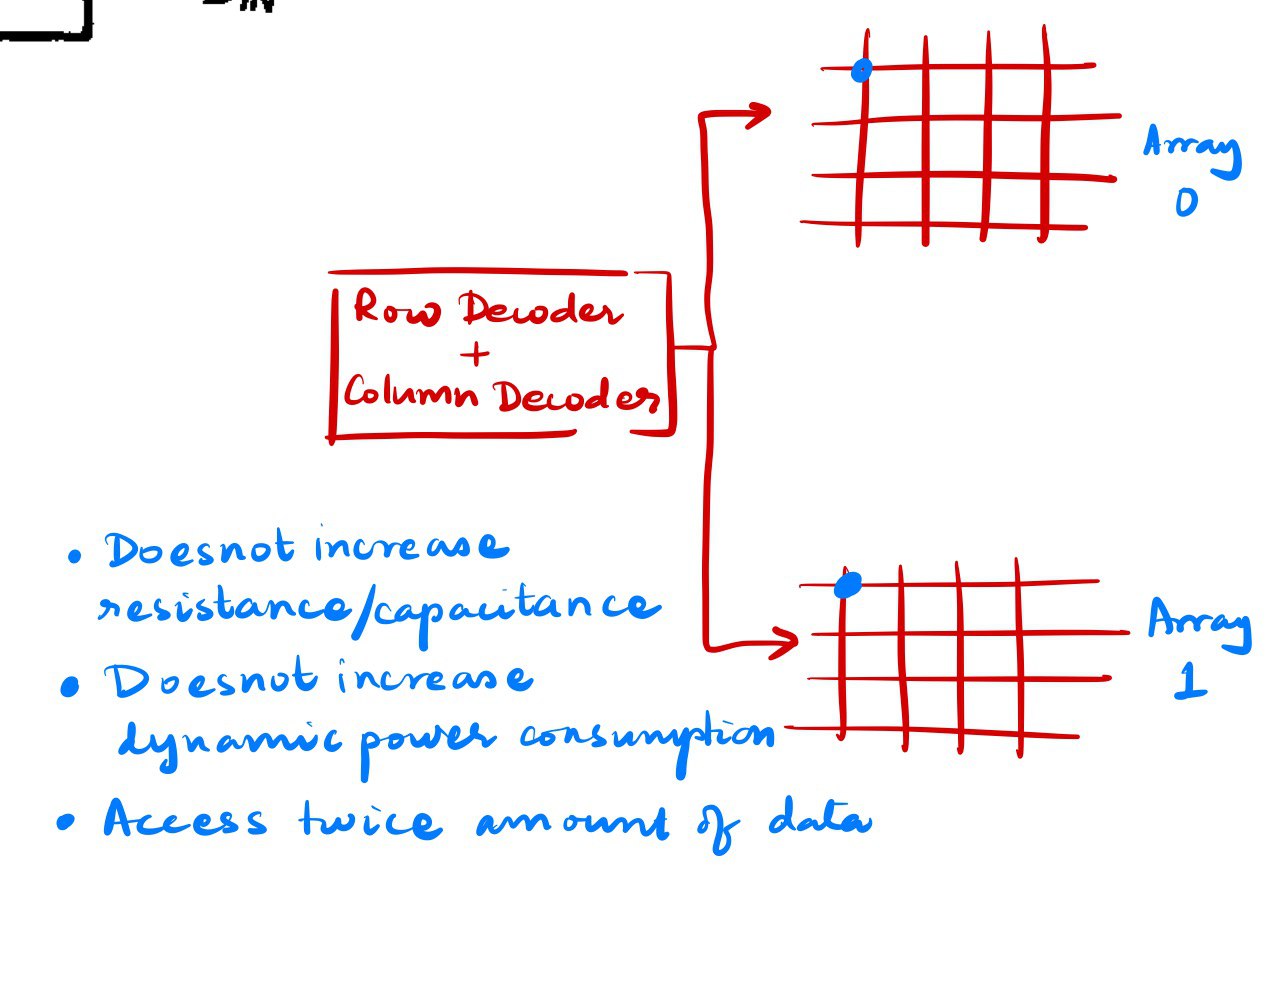 Row Decoder
+
Column Decoder
Array
0
Array
1
• Doesnot increase
resistance/capacitance
• Doesnot increase
dynamic power consumption
• Access twice amount of data